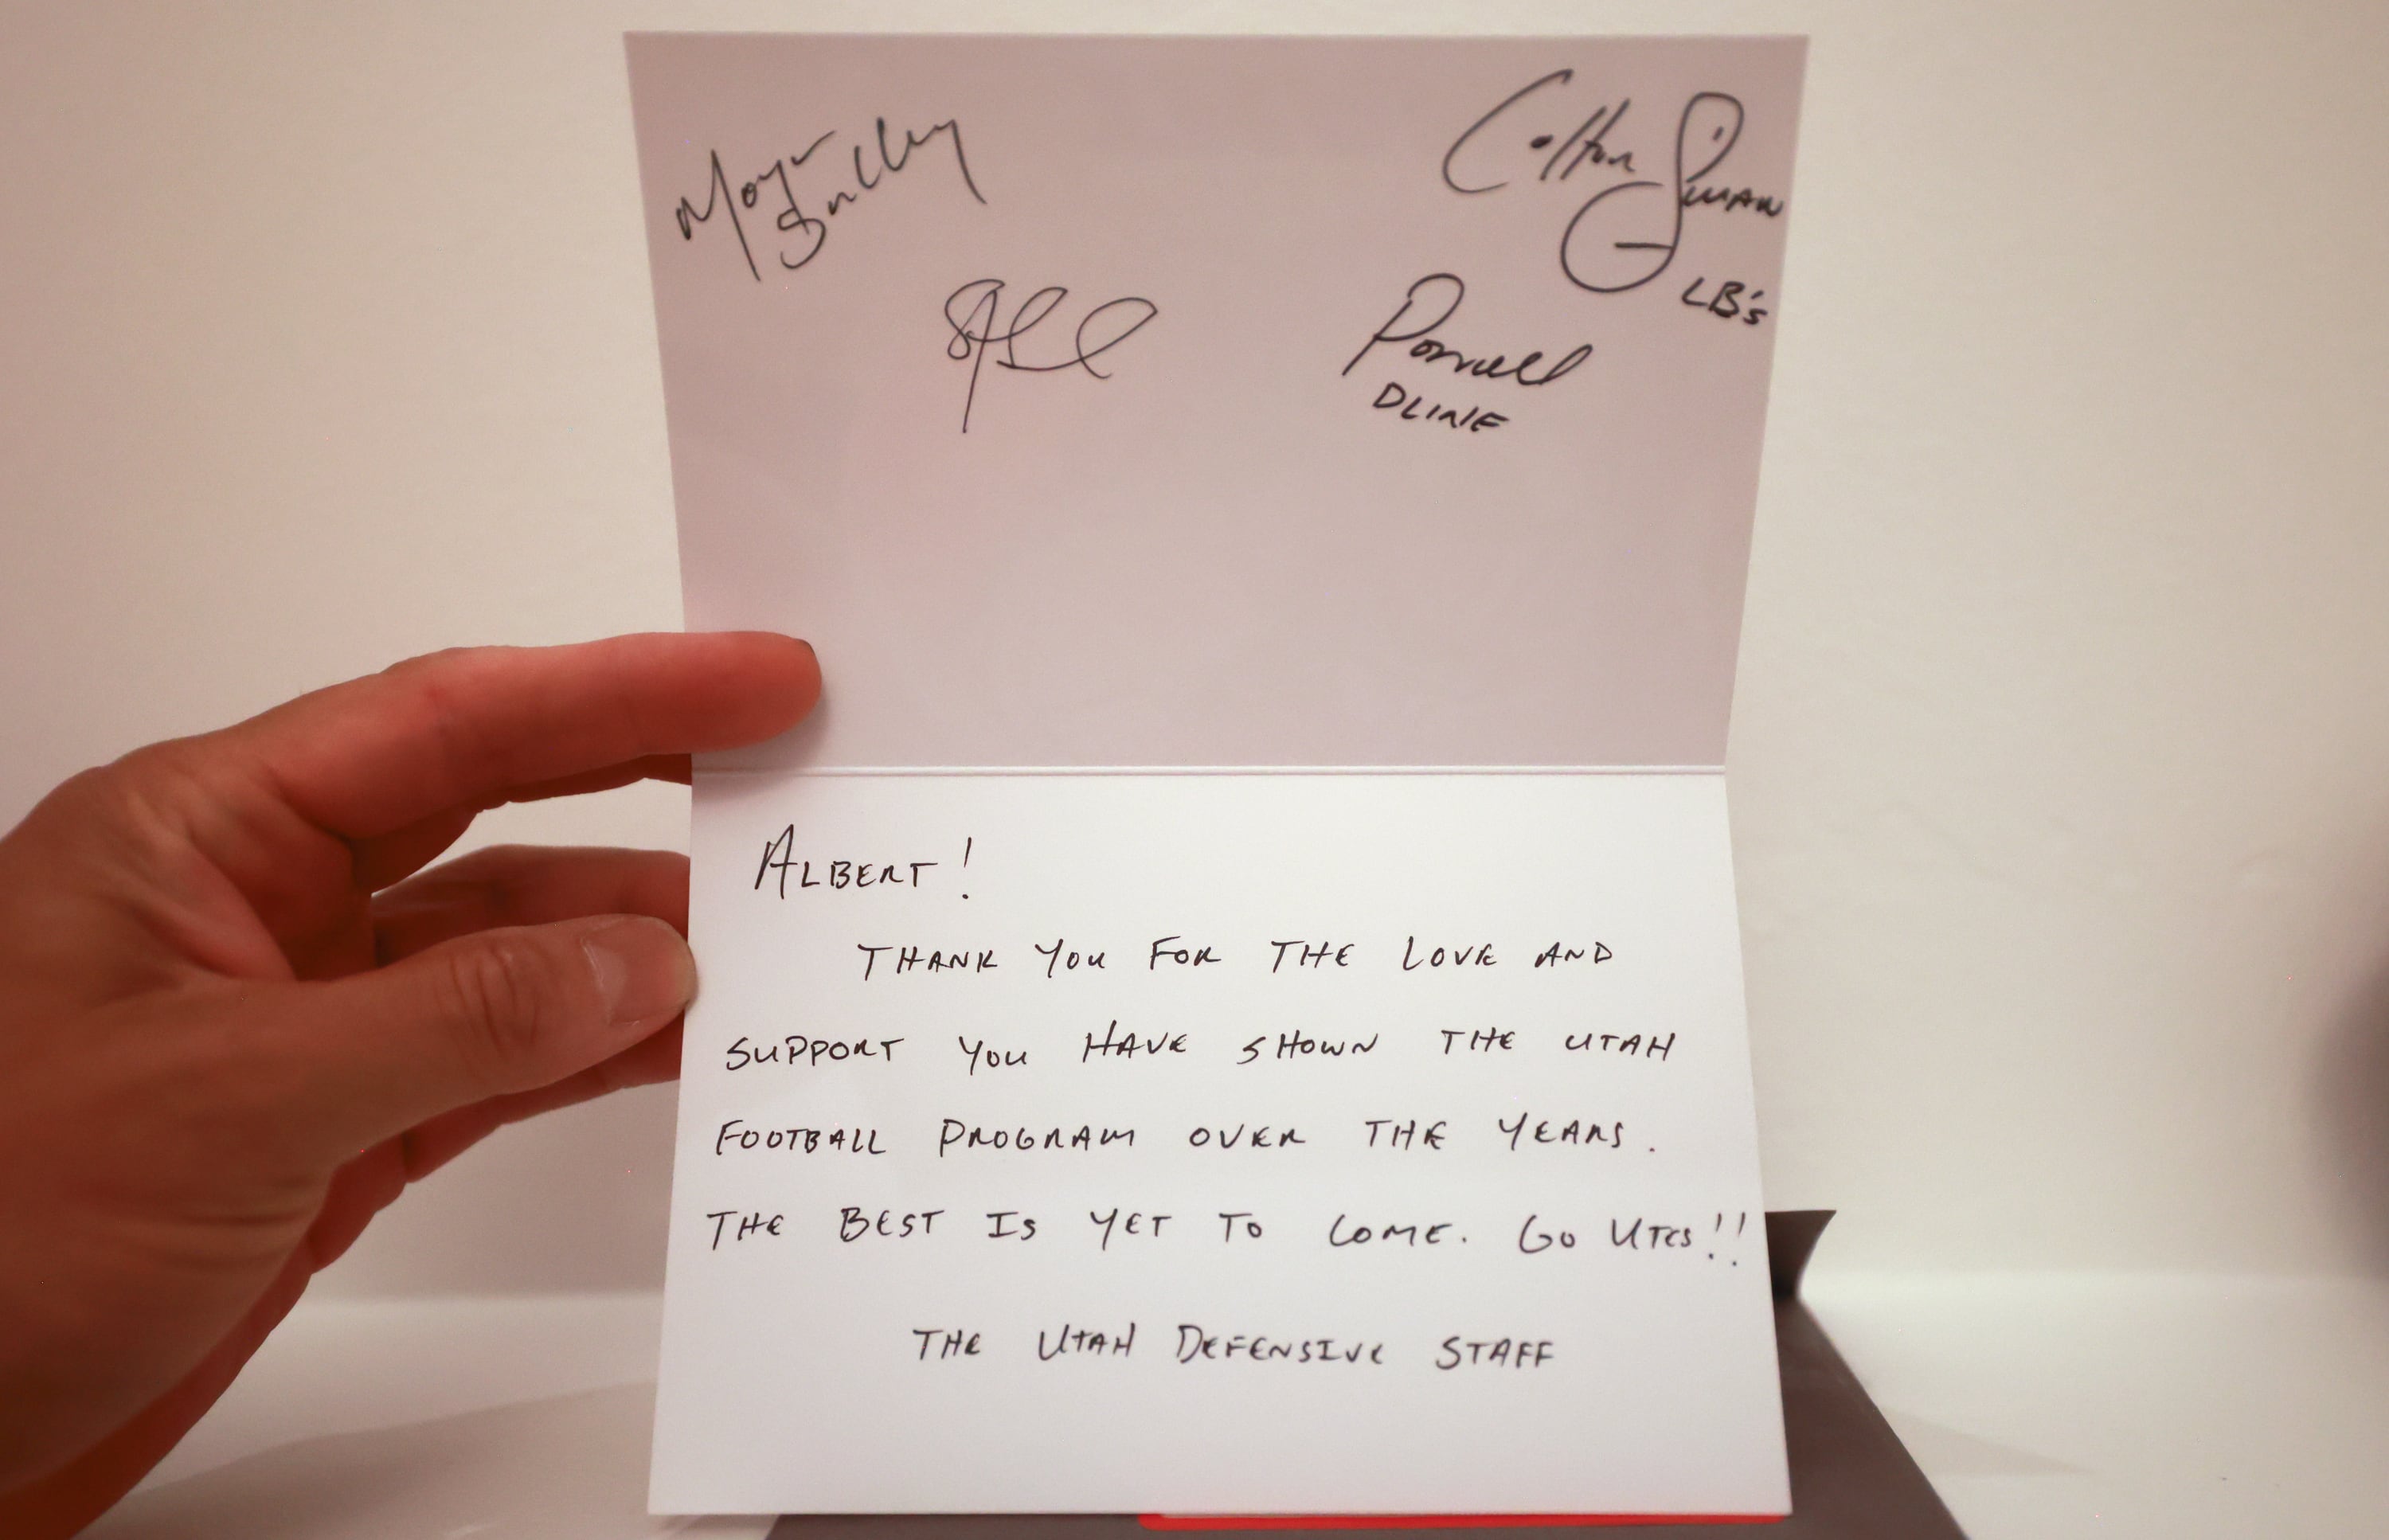 Morgan
Scalley
Colton Swan
LB's
Powell
DLINE
ALBERT!
THANK YOU FOR THE LOVE AND
SUPPORT YOU HAVE SHOWN THE UTAH
FOOTBALL PROGRAM OVER THE YEARS.
THE BEST IS YET TO COME. GO UTES!!
THE UTAH DEFENSIVE STAFF